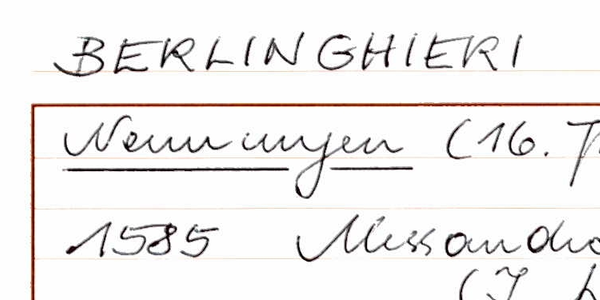 BERLINGHIERI
Nennungen (16. J
1585 Alessandro
(J